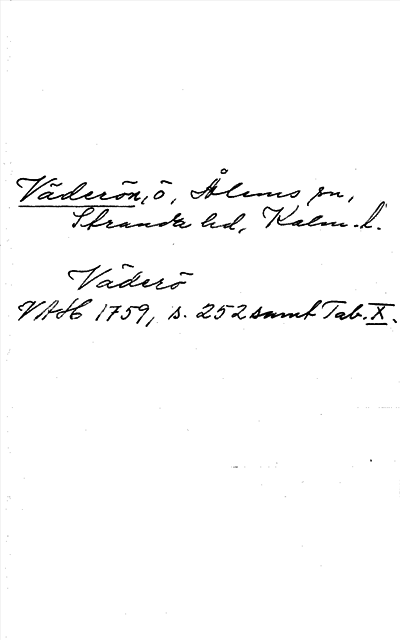 Väderön, ö, Ålems sn,
Stranda hd, Kalm. l.
Väderö
VAH 1759, s. 252 samt Tab. X.